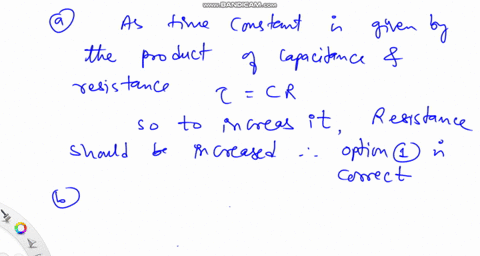 www.BANDICAM.com
(a) As time constant is given by
the product of capacitance &
resistance τ = CR
so to increas it, Resistance
should be increased ∴ option (1) is
correct
(b)